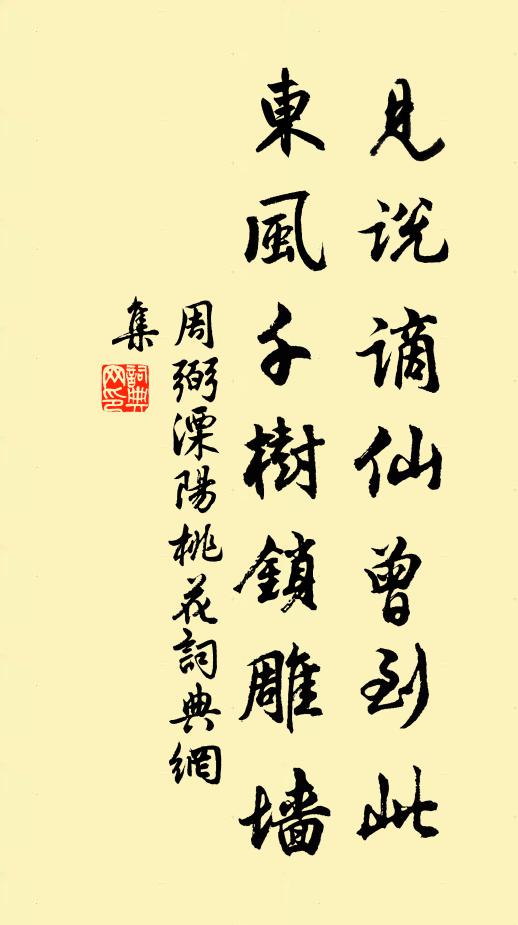 見説謫仙曾到此
東風千樹鎖雕墻
周弼溧陽桃花詞典網
集
詞典網印